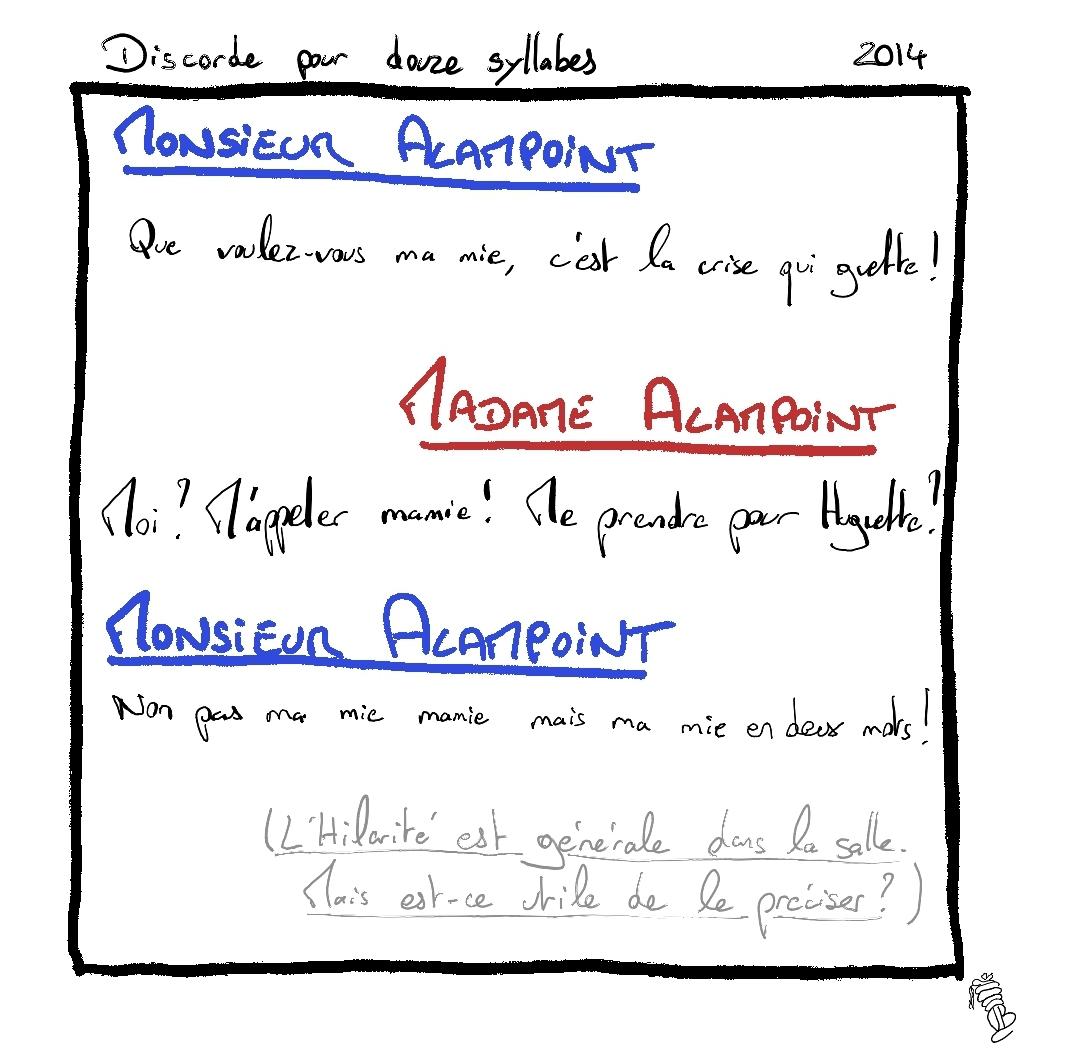 Discorde pour douze syllabes 2014
MONSIEUR ACAMPOINT
Que voulez-vous ma mie, c'est la crise qui guette !
MADAME ACAMPOINT
Moi ? M'appeler mamie ! Me prendre pour Huguette ?
MONSIEUR ACAMPOINT
Non pas ma mie mamie mais ma mie en deux mots !
(L'Hilarité est générale dans la salle.
Mais est-ce utile de le préciser ? )